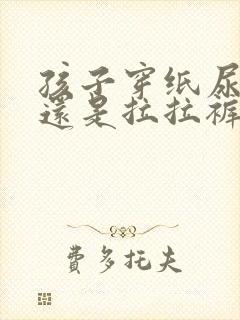 孩子穿纸尿
還是拉拉裤
費多托夫